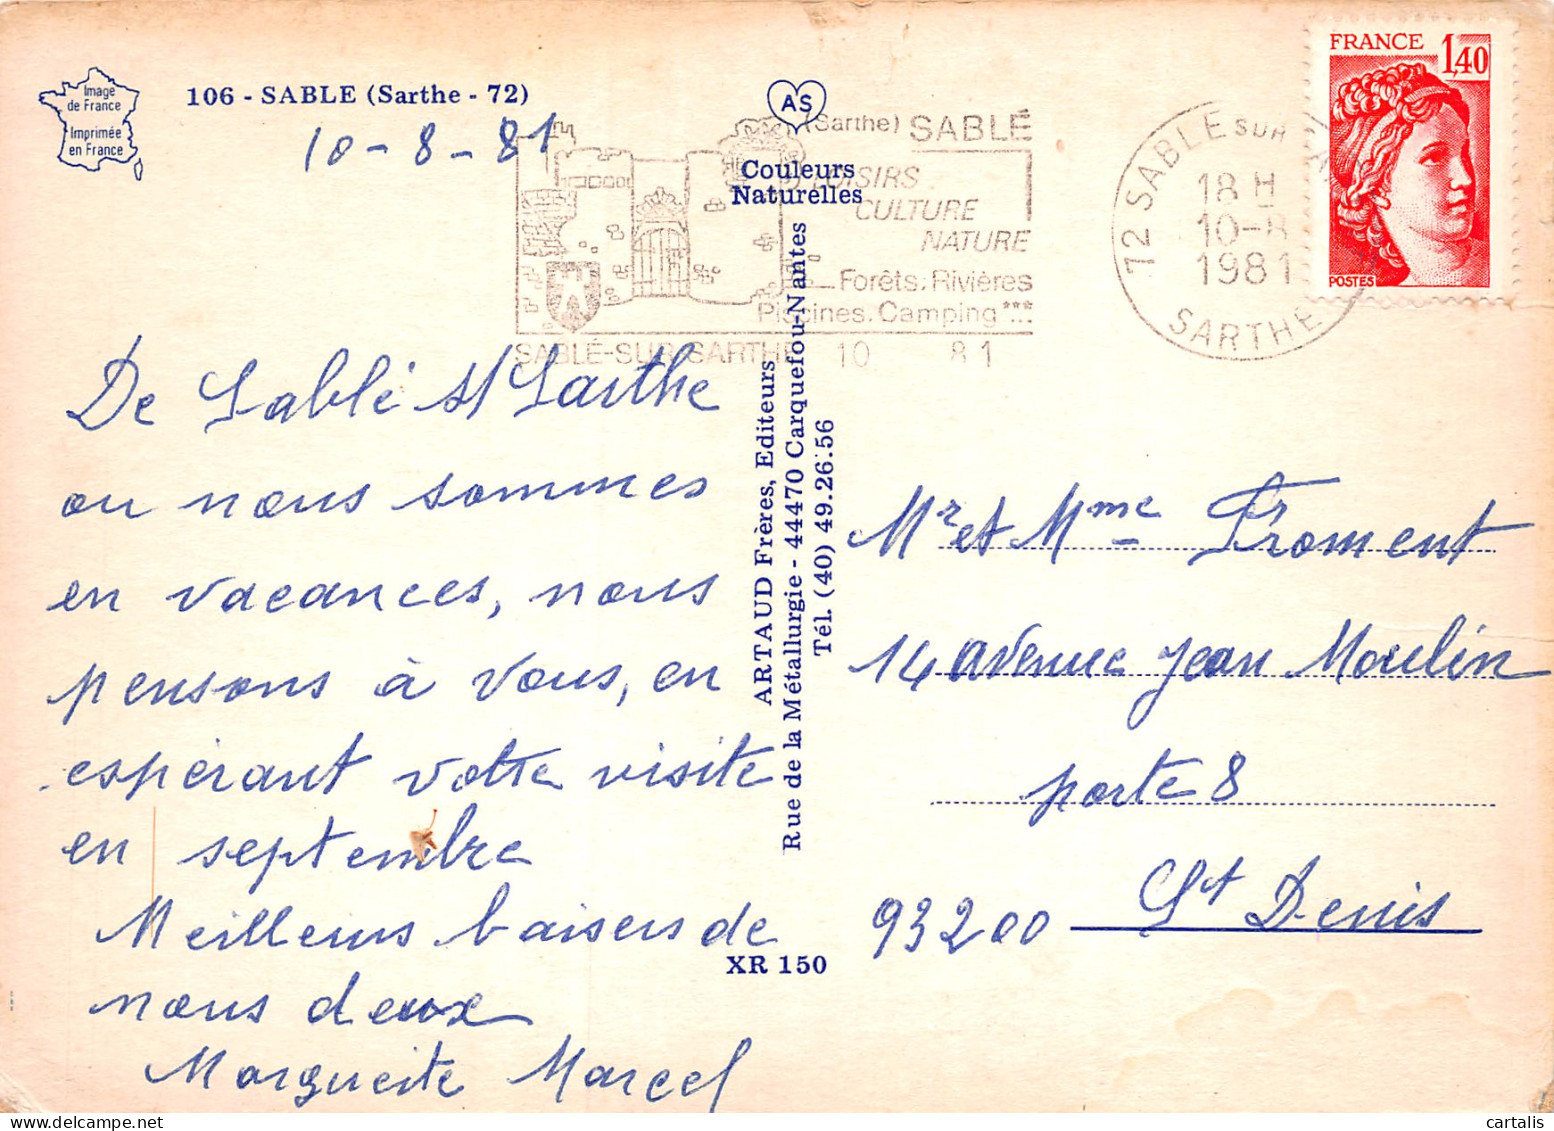 Image
de France
Imprimée
en France
106 - SABLE (Sarthe - 72)
10-8-81
AS
Couleurs
Naturelles
(Sarthe) SABLÉ
LOISIRS
CULTURE
NATURE
Forêts. Rivières
Piscines. Camping ***
SABLÉ-SUR-SARTHE 10 81
72 SABLE SUR
18 H
10-8
1981
SARTHE
FRANCE 1,40
POSTES
De Sablé s/ Sarthe
ou nous sommes
en vacances, nous
pensons à vous, en
espérant votre visite
en septembre
Meilleurs baisers de
nous deux
Marguerite Marcel
ARTAUD Frères, Editeurs
Rue de la Métallurgie - 44470 Carquefou-Nantes
Tél. (40) 49.26.56
XR 150
Mr et Mme Froment
14 avenue Jean Moulin
porte 8
93200 St Denis
cartalis